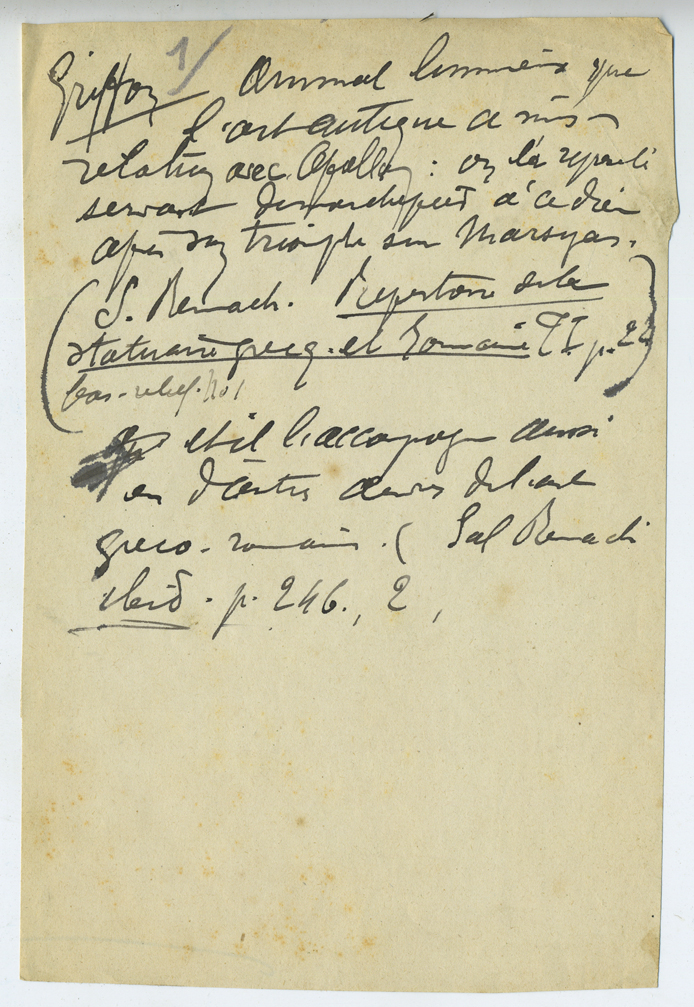 Griffon 1/ animal lumineux que
l'art antique a mis en
relation avec Apollon : on l'a représenté
servant de marchepied à ce dieu
après son triomphe sur Marsyas.
(S. Reinach. Répertoire de la
statuaire grecq. et Romaine T I p. 24
bas-relief. No 1
et il l'accompagne aussi
en d'autres œuvres de l'art
greco-romain. ( Sal Reinach
ibid. p. 246., 2,